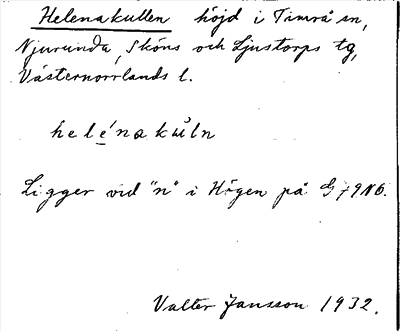 Helenakullen höjd i Timrå sn,
Njurunda, Sköns och Ljustorps tg,
Västernorrlands l.
helénakùln
Ligger vid "n" i Högen på G 79 N6.
Valter Jansson 1932.